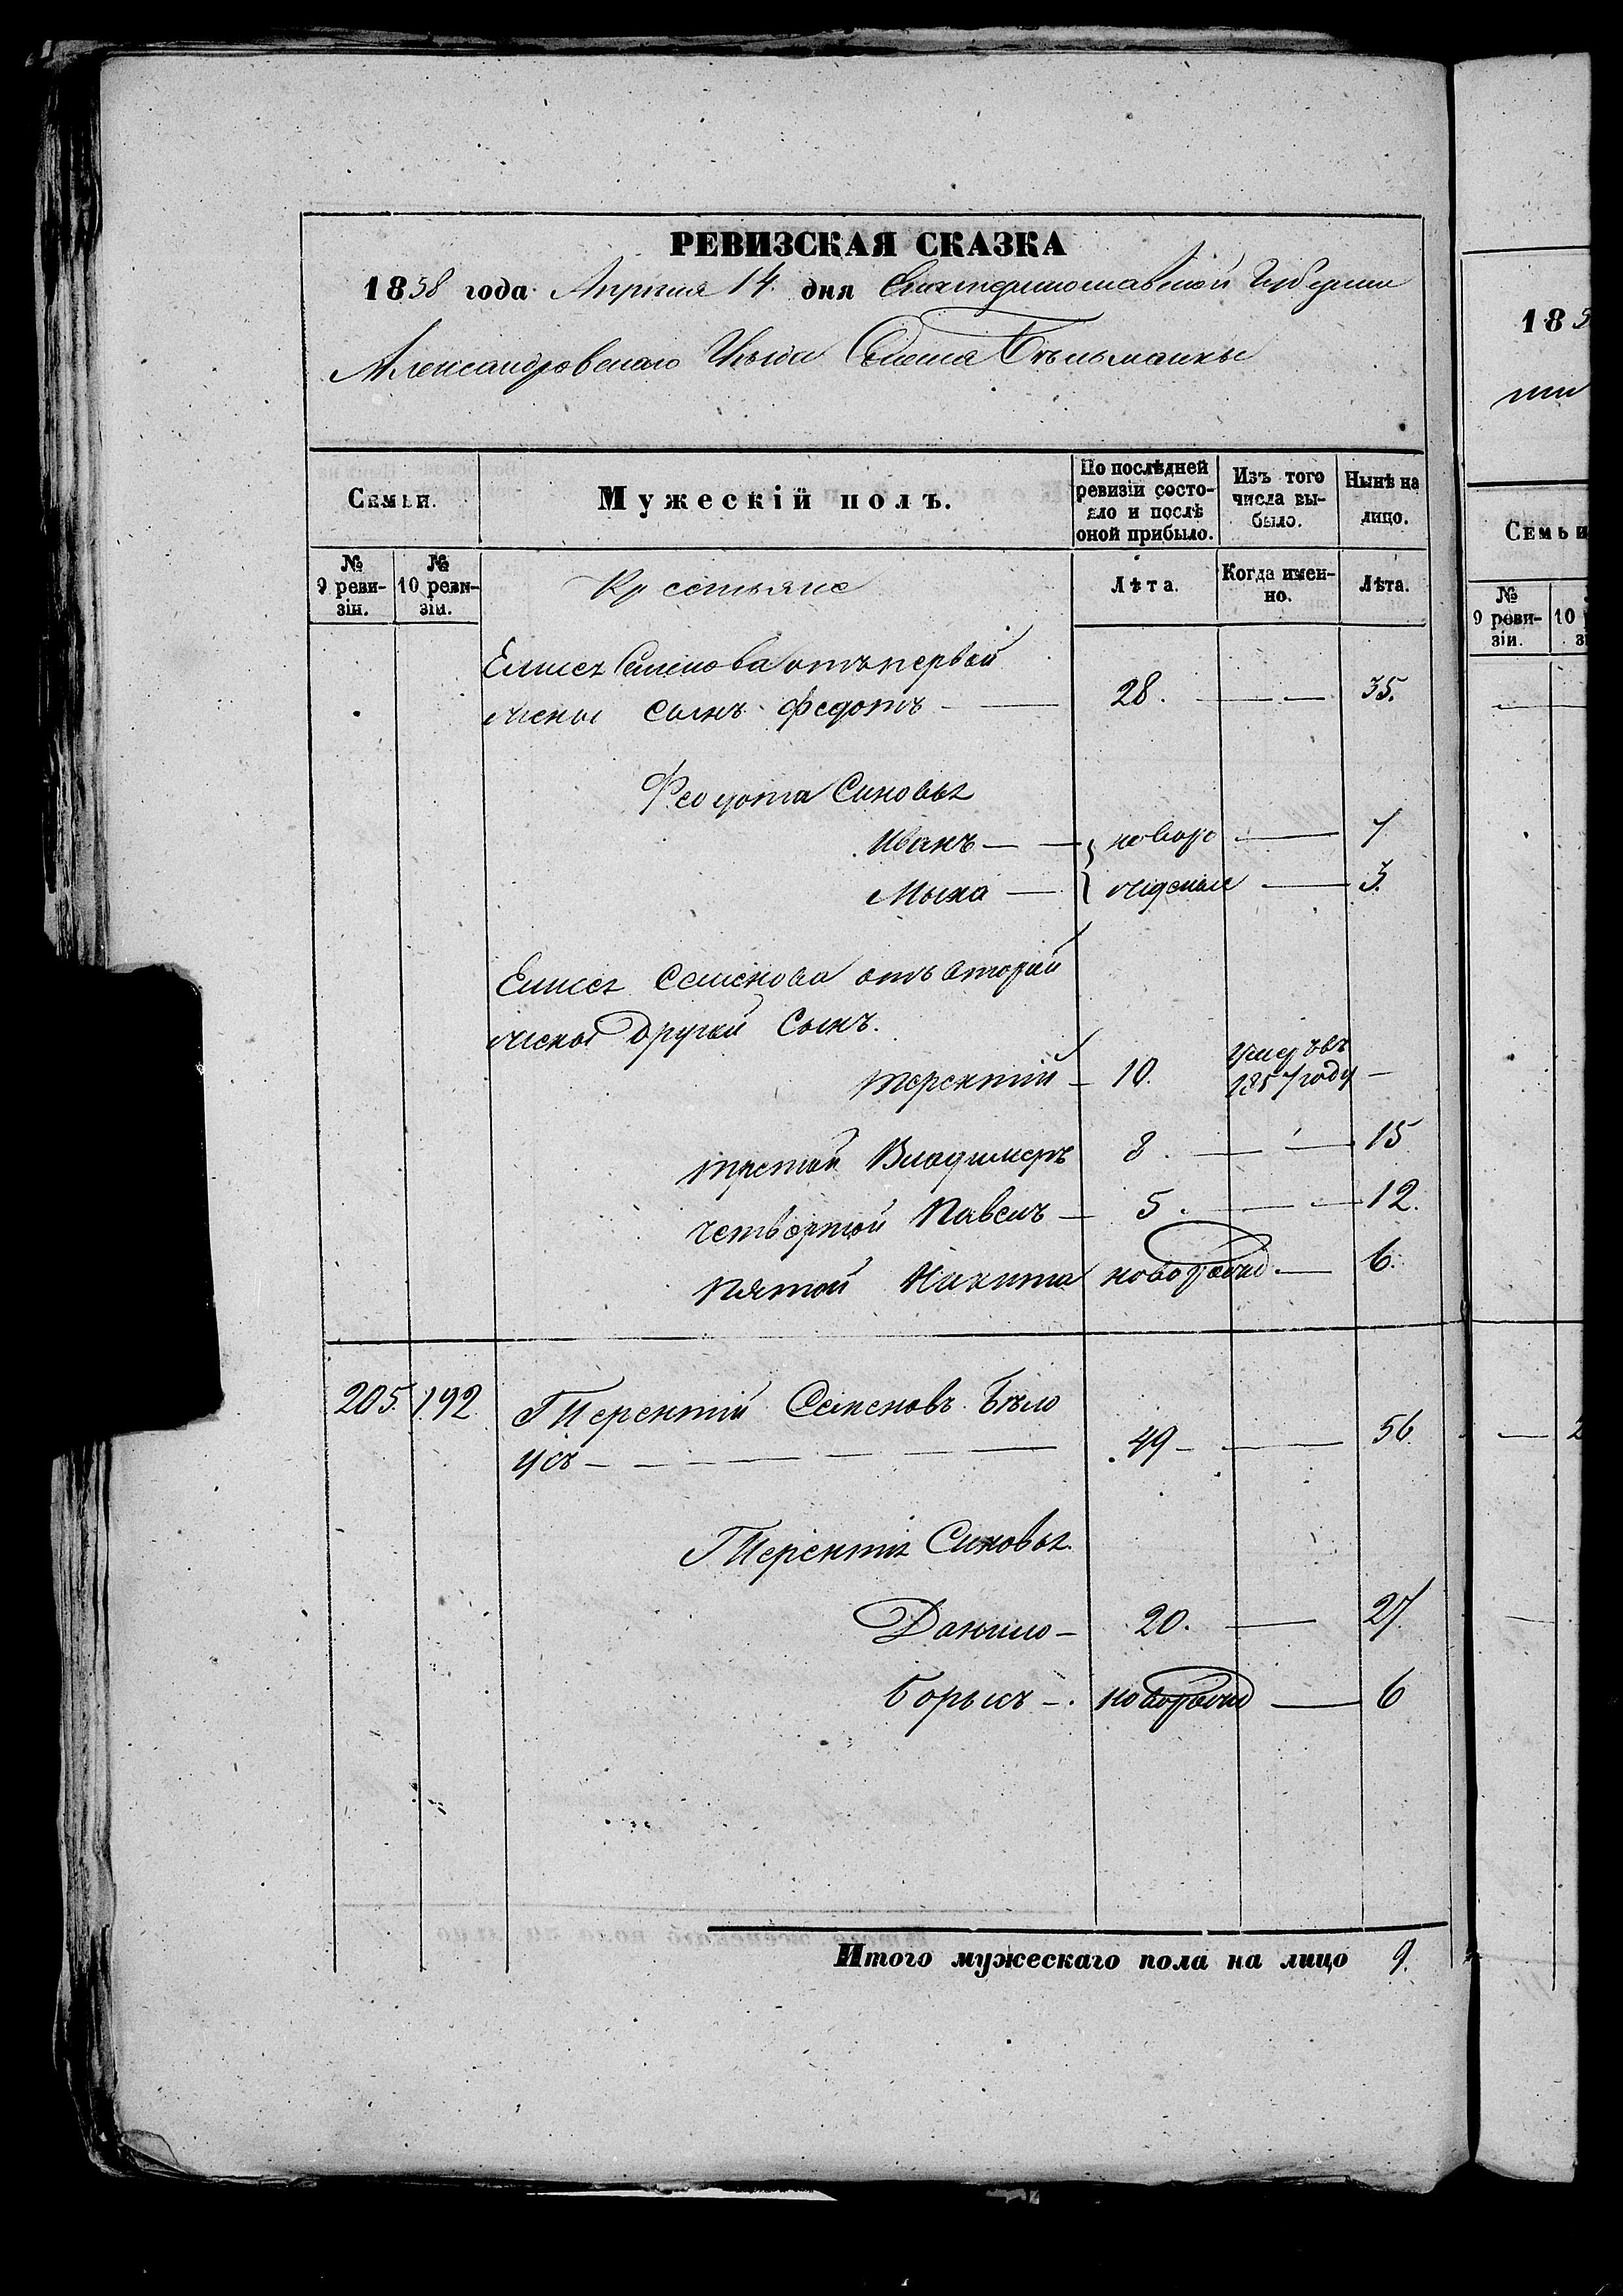 РЕВИЗСКАЯ СКАЗКА
1858 года Апреля 14. дня Екатеринославской Губернии
Александровскаго Уѣзда Селенія Бѣльманки
Семьи.
Мужескій полъ.
По послѣдней ревизіи состояло и послѣ оной прибыло.
Изъ того числа выбыло.
Нынѣ на лицо.
№ 9 ревизіи.
№ 10 ревизіи.
Крестьяне
Лѣта.
Когда именно.
Лѣта.
Елисея Семенова отъ первой
жены сынъ Федотъ — 28. — 35.
Федота Синовья
Иванъ — новоро — 7
Мына — жденые — 3.
Елисея Семенова отъ второй
жены Другой Сынъ.
Терентий — 10. Умеръ въ 1857 году —
третой Владимеръ 8. — 15
четвертой Павелъ — 5. — 12.
Пятой Никита новорожд. — 6.
205. 192 Терентій Семеновъ Бѣло
усъ — 49 — 56.
Терентия Синовья
Данило — 20. — 27.
Борысъ — новорожд — 6
Итого мужескаго пола на лицо 9.
185
Семьи
№ 9 ревизіи.
10